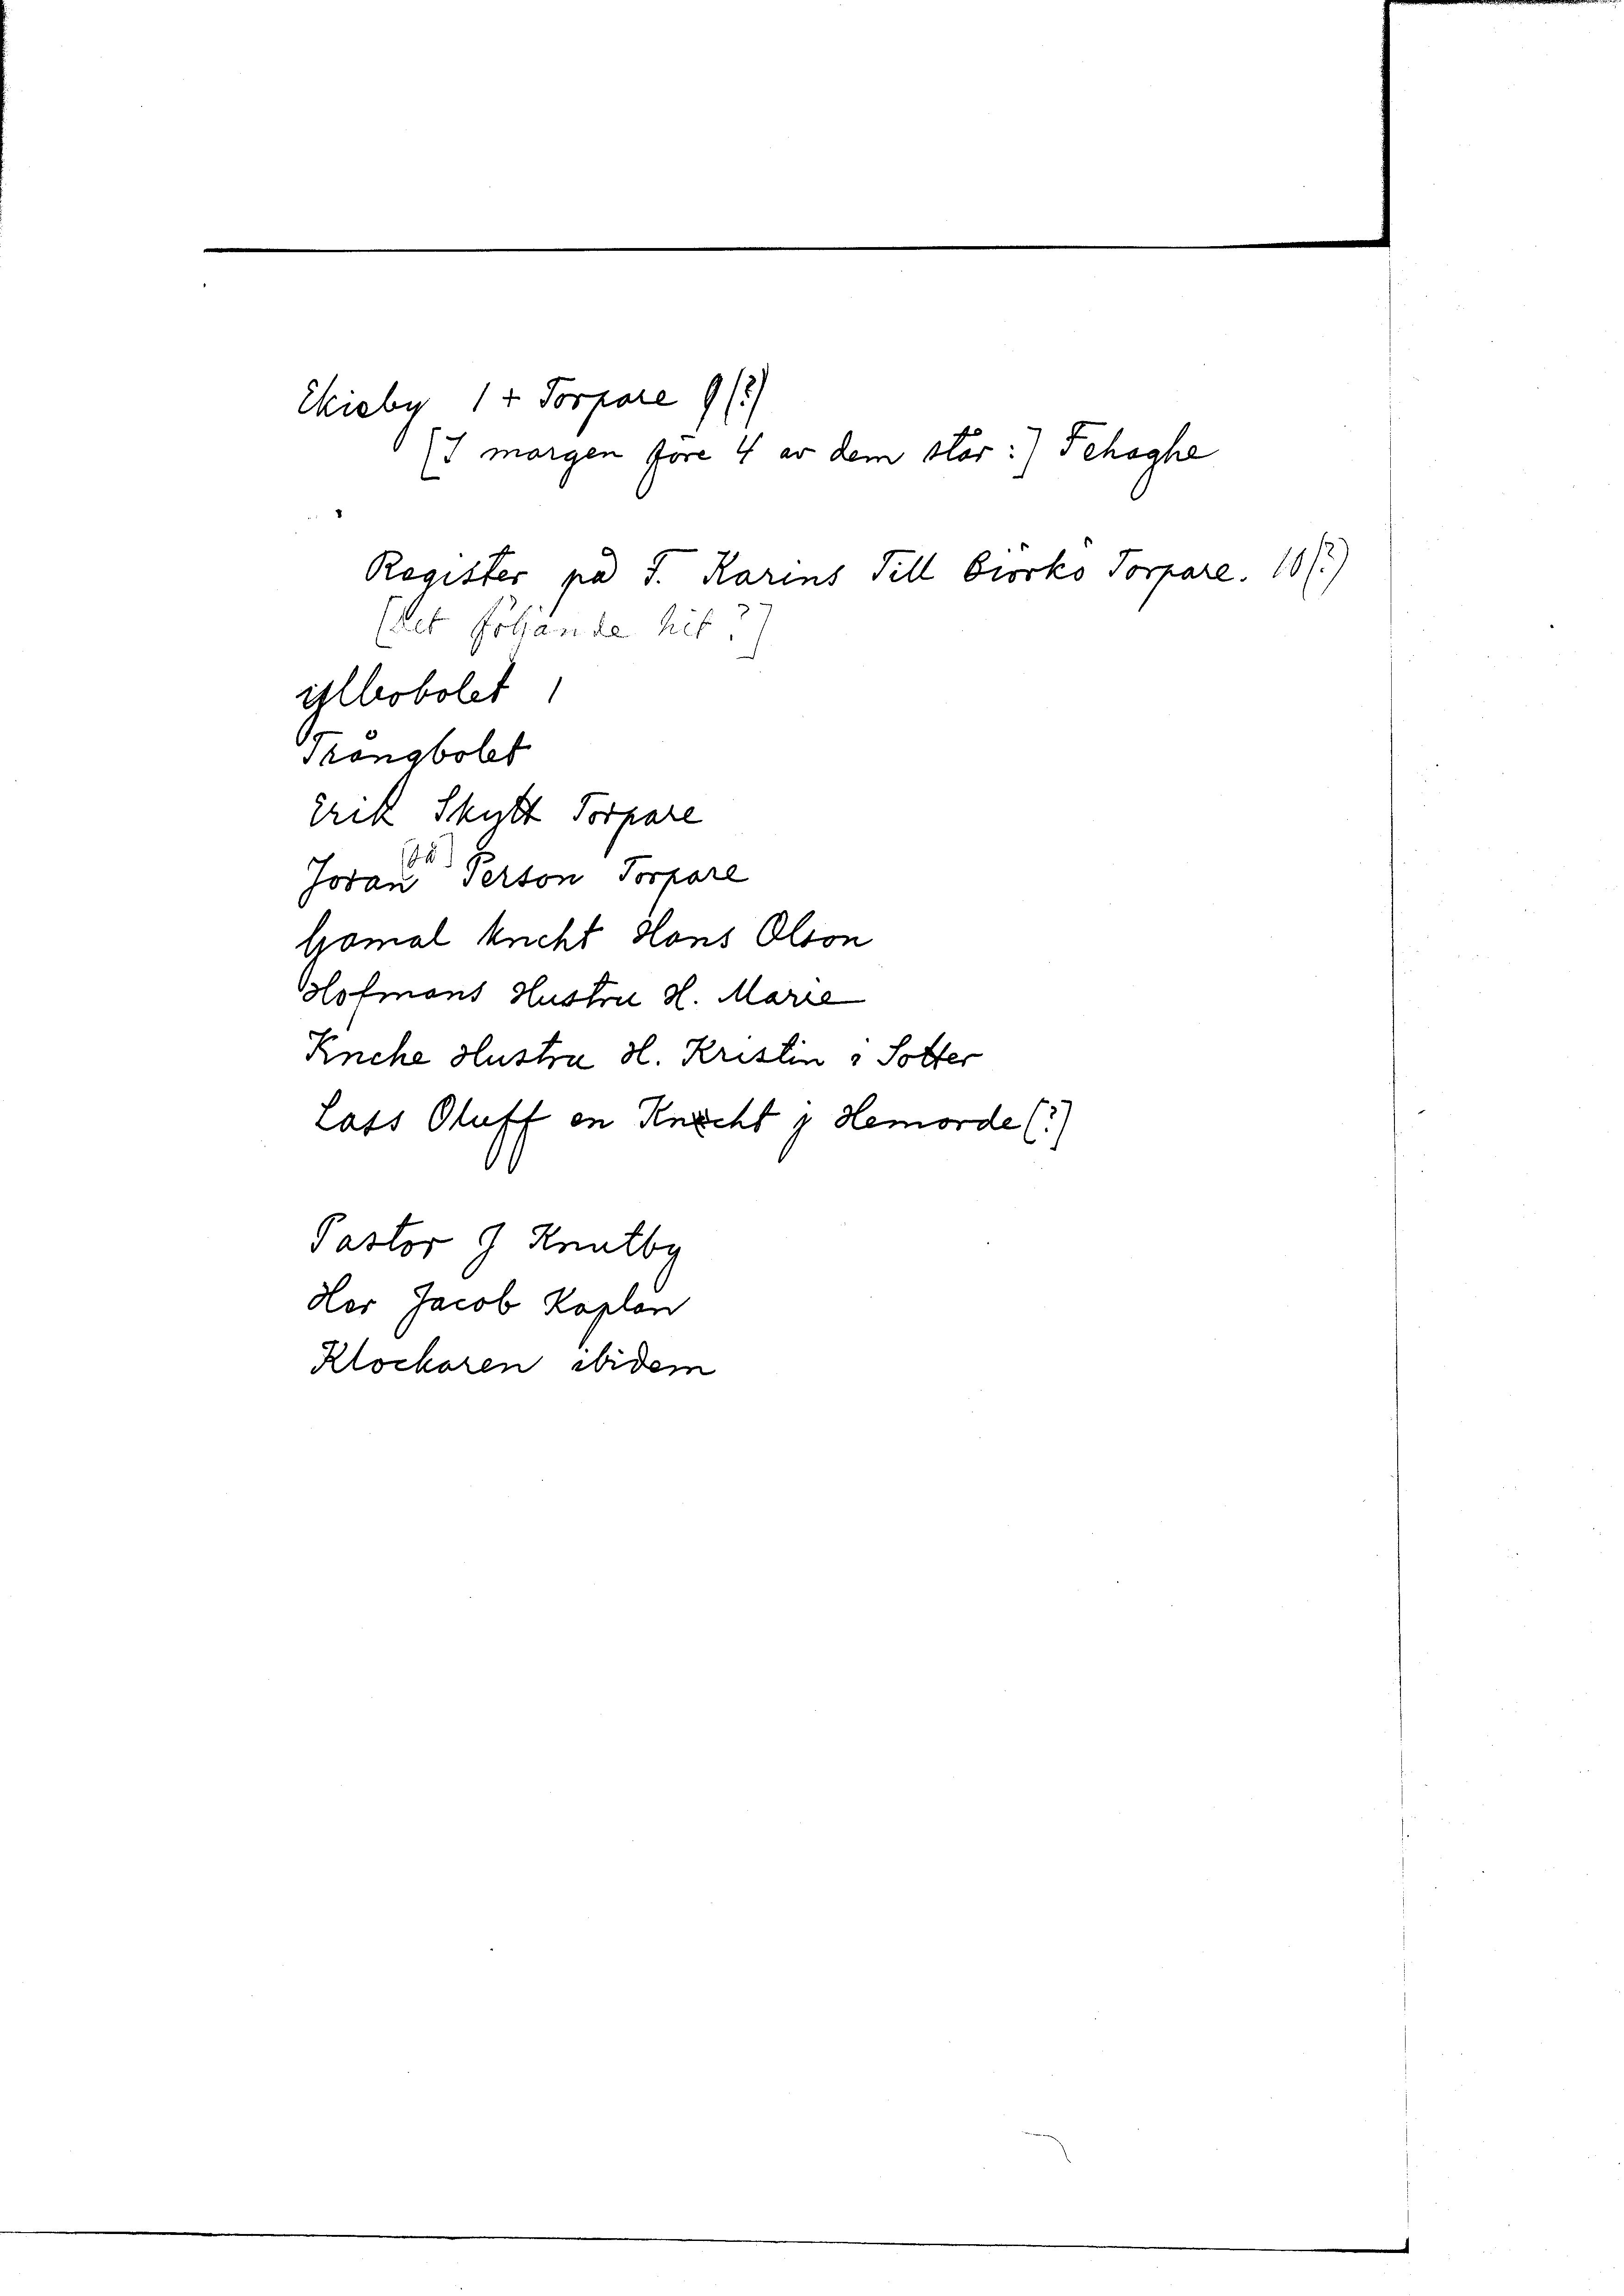 Ekieby 1 + Torpare 9 (?)
(I margen före 4 av dem står:) Fehaghe
Register på F. Karins Till Biörkö Torpare. 10(?)
(det föliande hit?)
ijllerbolet 1
Trångbolet
Erik Skytt Torpare
(så)
Joran Person Torpare
Gamal kncht Hans Olson
Hofmans Hustru H. Marie
Knche Hustru H. Kristin i Sotter
Lass Oluff en Knecht j Hemorde (?)
Pastor J Knutby
Her Jacob Kaplan
Klockaren ibidem